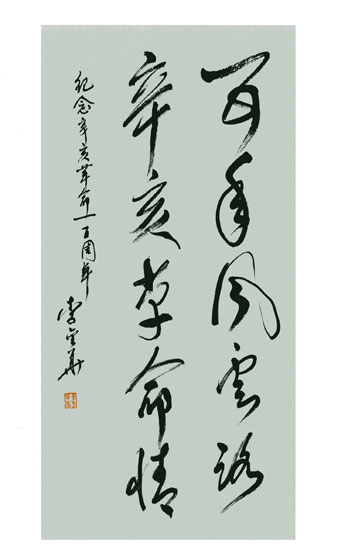 百年风云路
辛亥革命情
纪念辛亥革命一百周年
李金华